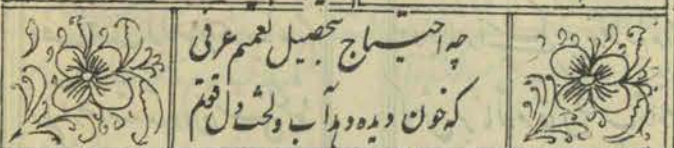 چه احتیاج بتحصیل نعمتم عرفی
که خون دیده دهد آب و لخت دل قوتم